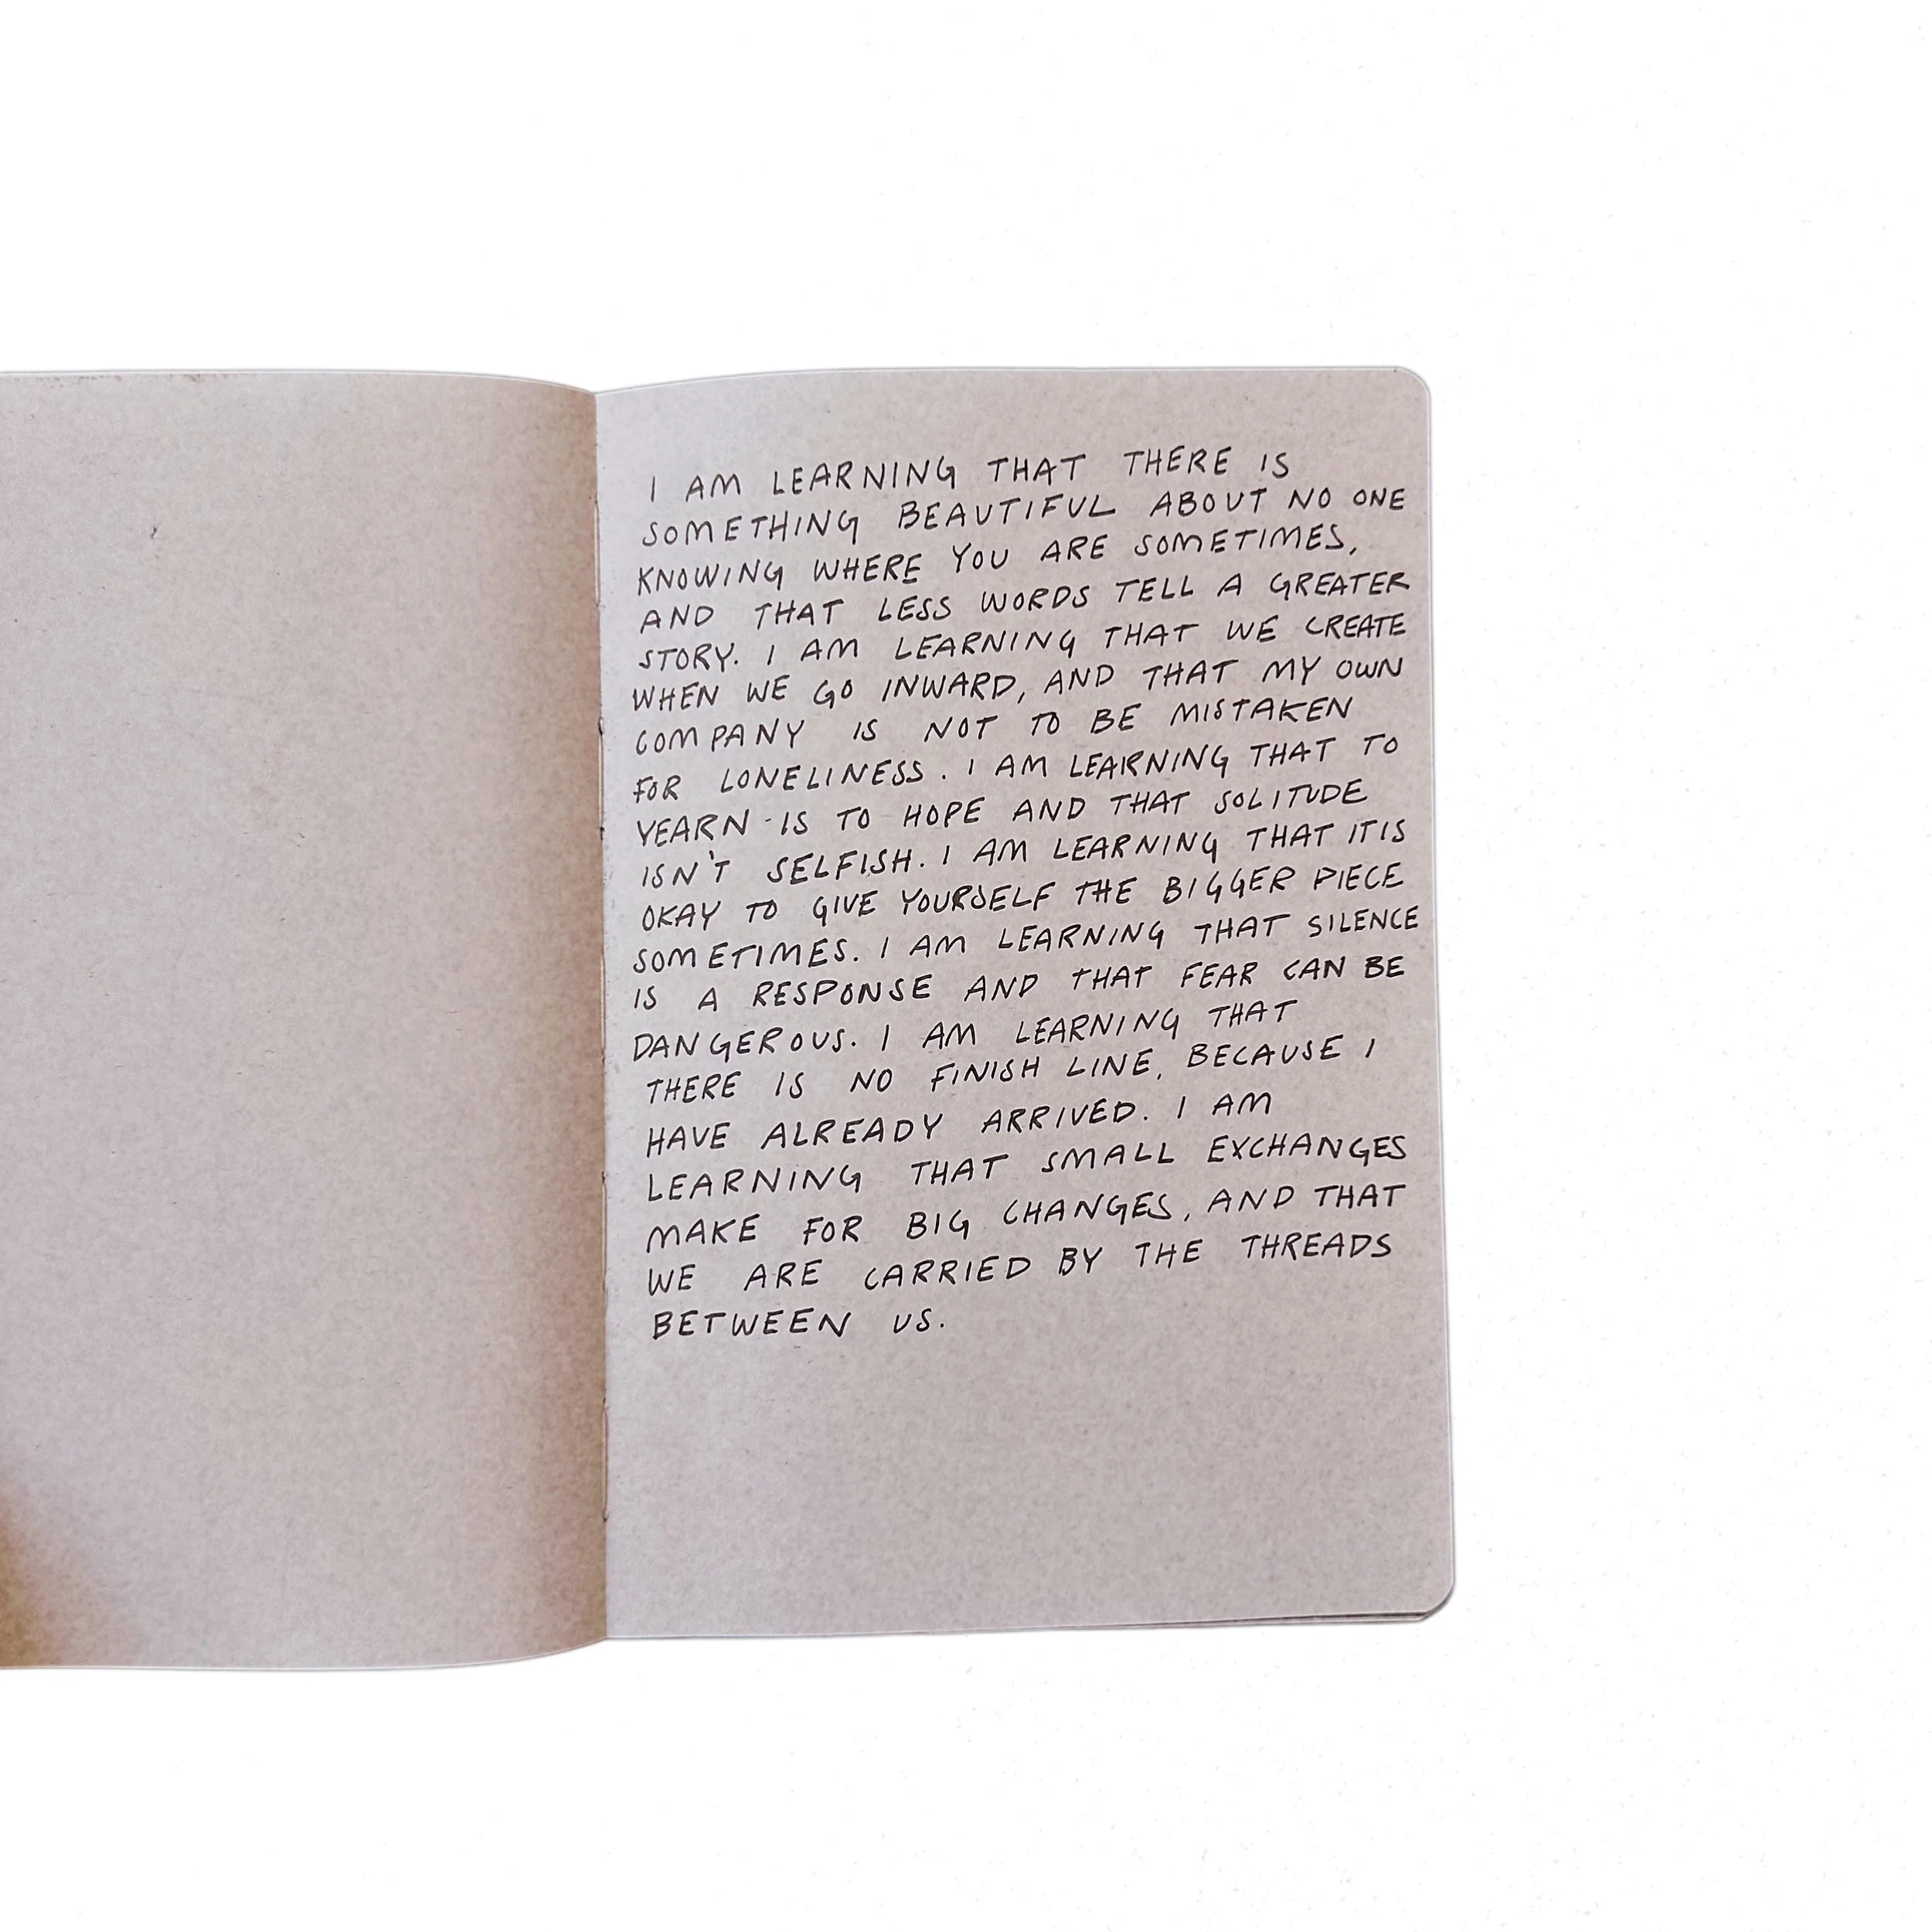 I AM LEARNING THAT THERE IS
SOMETHING BEAUTIFUL ABOUT NO ONE
KNOWING WHERE YOU ARE SOMETIMES,
AND THAT LESS WORDS TELL A GREATER
STORY. I AM LEARNING THAT WE CREATE
WHEN WE GO INWARD, AND THAT MY OWN
COMPANY IS NOT TO BE MISTAKEN
FOR LONELINESS. I AM LEARNING THAT TO
YEARN IS TO HOPE AND THAT SOLITUDE
ISN'T SELFISH. I AM LEARNING THAT IT IS
OKAY TO GIVE YOURSELF THE BIGGER PIECE
SOMETIMES. I AM LEARNING THAT SILENCE
IS A RESPONSE AND THAT FEAR CAN BE
DANGEROUS. I AM LEARNING THAT
THERE IS NO FINISH LINE, BECAUSE I
HAVE ALREADY ARRIVED. I AM
LEARNING THAT SMALL EXCHANGES
MAKE FOR BIG CHANGES, AND THAT
WE ARE CARRIED BY THE THREADS
BETWEEN US.